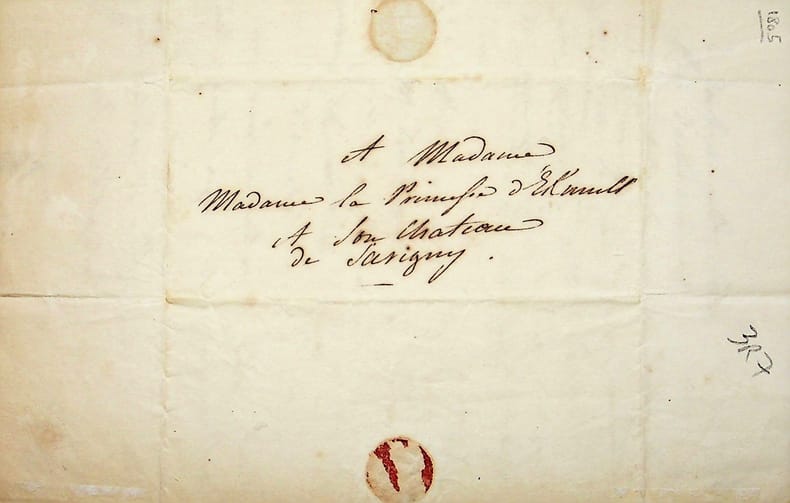 A Madame
Madame la Princesse d'Ekmulh
A Son Chateau
de Savigny.
1805